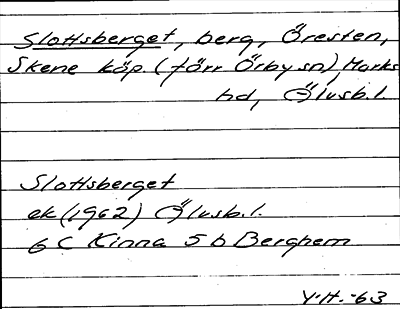 Slottsberget, berg, Öresten,
Skene köp. (förr Örby sn), Marks
hd, Älvsb.l.
Slottsberget
ek (1962) Älvsb.l.
6 C Kinna 5 b Berghem
Y.H. -63